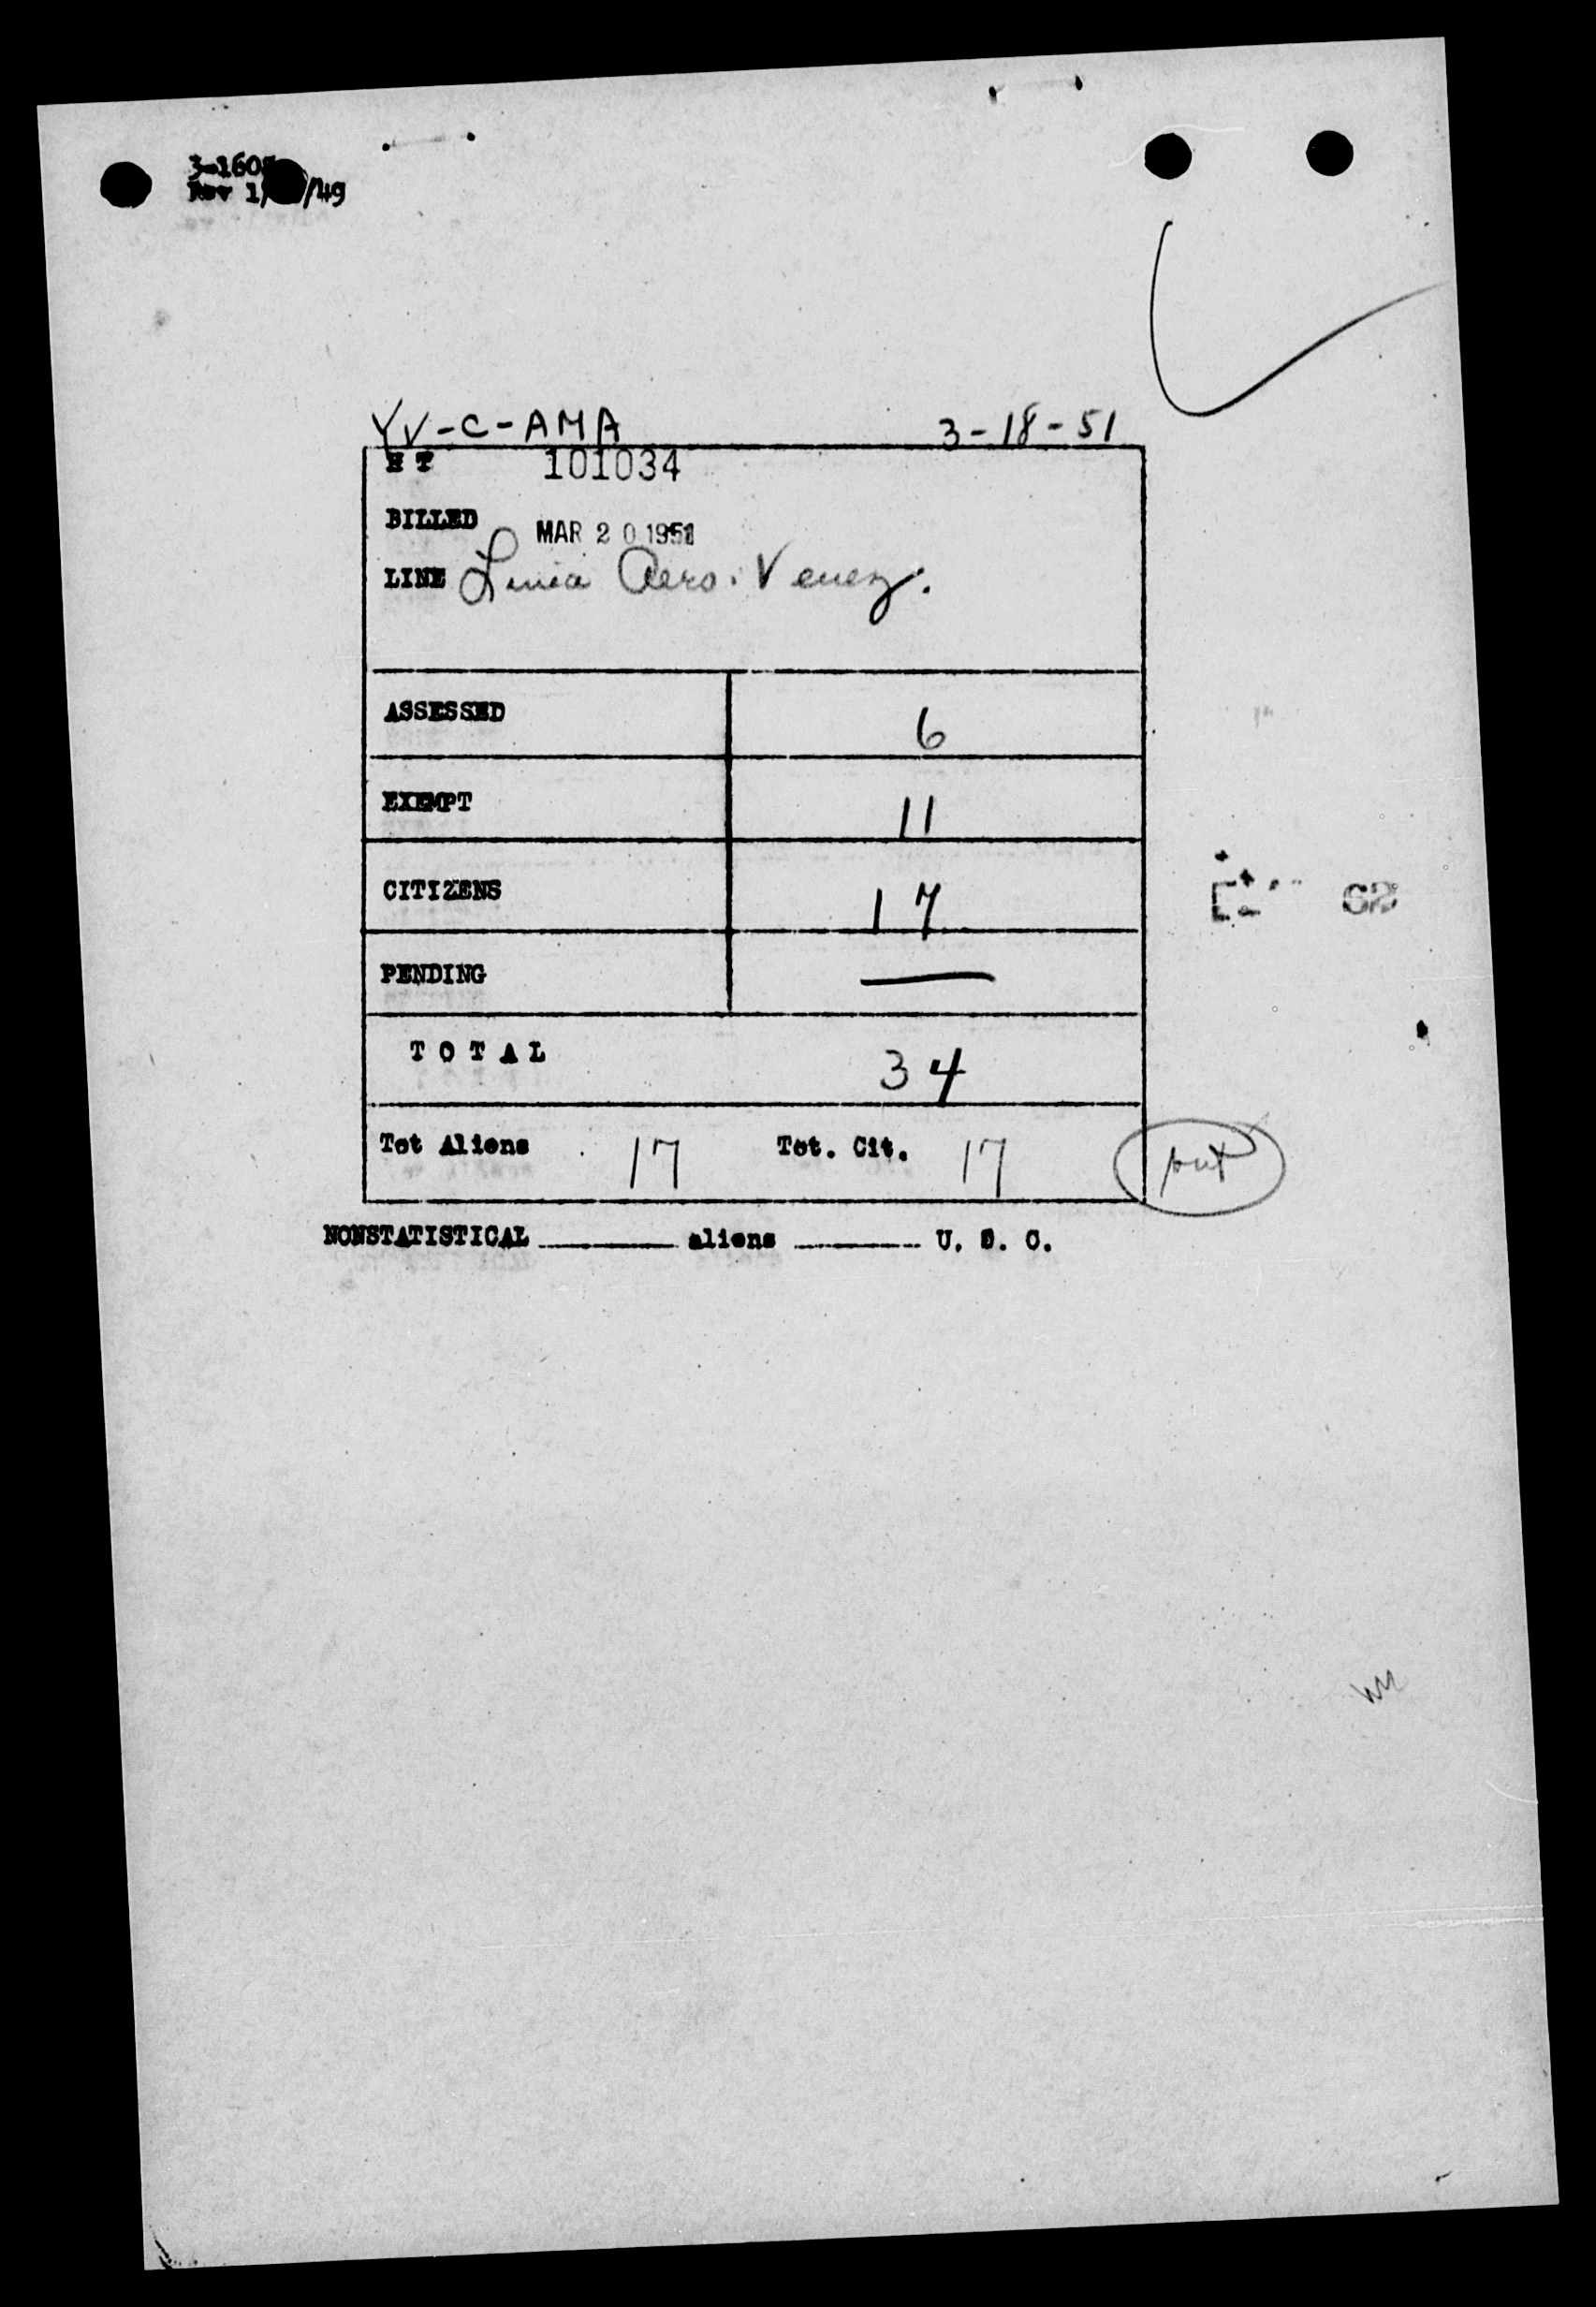 3-1603
Rev 1/ /49
YV-C-AMA 3-18-51
H T 101034
BILLED MAR 20 1951
LINE Linea Aero. Venez.
ASSESSED 6
EXEMPT 11
CITIZENS 17
PENDING —
TOTAL 34
Tot Aliens 17 Tot. Cit. 17
NONSTATISTICAL ______ aliens ______ U. S. C.